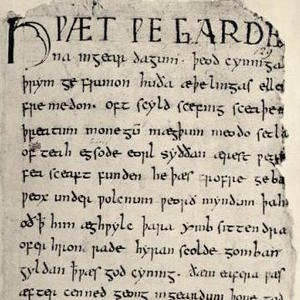 HǷÆT ǷE GARDE
na ingear dagum. þeod cyninga
þrym ge frunon huða æþelingas elle
fre medon. oft scyld scefing sceaþe
þreatum monegū mægþum meodo setla
of teah egsode eorl syððan ærest ƿea
fea sceaft funden he þæs frofre geba
ƿeox under ƿolcnum ƿeorð myndum þah
oð ꝥ him æghƿylc þara ymb sittendra
ofer hron rade hyran scolde gomban
gyldan ꝥ ƿæs god cyning. ðæm eafera ƿæs
æfter cenned geong ingeardum þone god